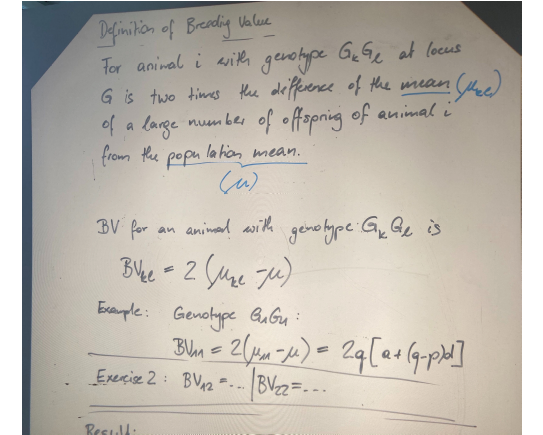 Definition of Breeding Value
For animal i with genotype GₖGₗ at locus
G is two times the difference of the mean (μₖₗ)
of a large number of offspring of animal i
from the population mean.
(μ)
BV for an animal with genotype GₖGₗ is
BVₖₗ = 2 (μₖₗ - μ)
Example: Genotype G₁G₁ :
BV₁₁ = 2(μ₁₁ - μ) = 2q[a+(q-p)d]
Exercise 2 : BV₁₂ = ... | BV₂₂ = ...
Result: